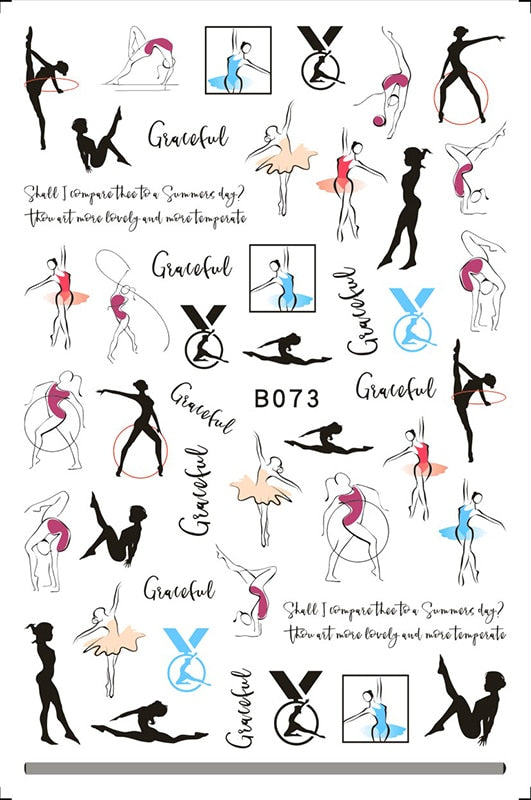 Graceful
Shall I compare thee to a Summers day?
Thou art more lovely and more temperate
Graceful
Graceful
Graceful
Graceful
B073
Graceful
Graceful
Shall I compare thee to a Summers day?
Thou art more lovely and more temperate
Graceful